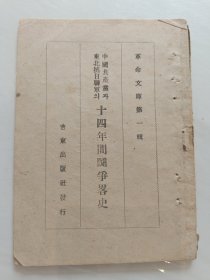 革命文庫第一輯
中國共産黨과
東北抗日聯軍의
十四年間鬪爭畧史
吉東出版社發行